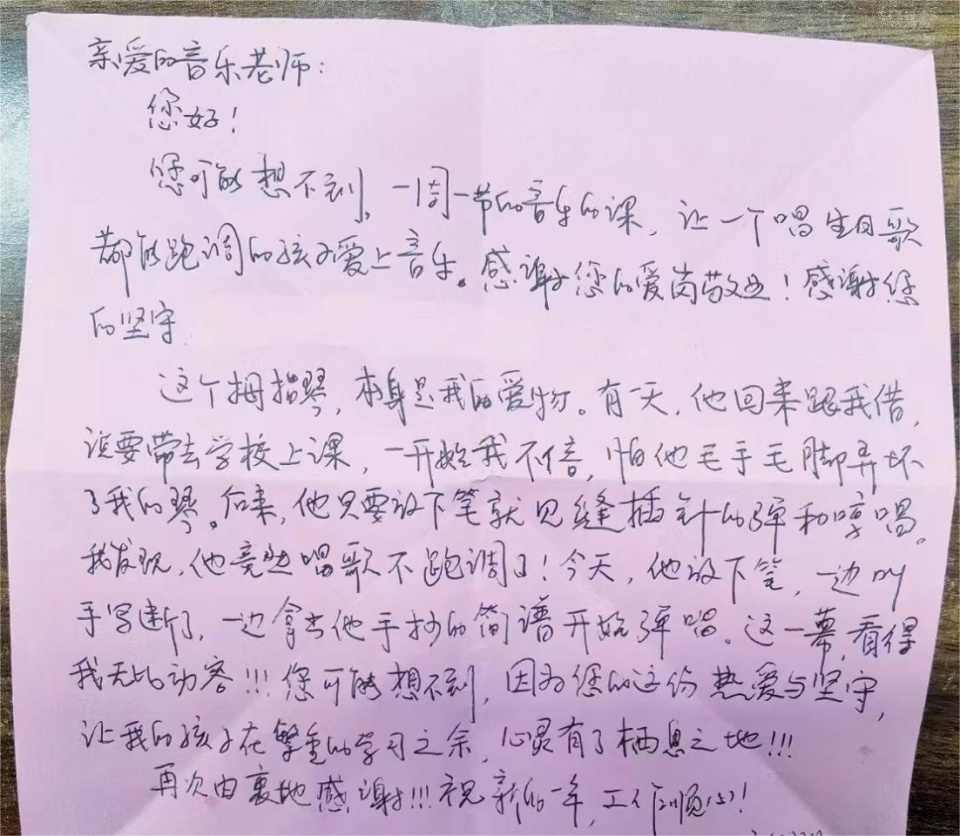 亲爱的音乐老师:
您好!
您可能想不到,一周一节的音乐的课,让一个唱生日歌
都能跑调的孩子爱上音乐。感谢您的爱岗敬业!感谢您
的坚守.
这个拇指琴,本身是我的爱物。有一天,他回来跟我借,
说要带去学校上课,一开始我不信,怕他毛手毛脚弄坏
了我的琴。后来,他只要放下笔就见缝插针的弹和哼唱。
我发现,他竟然唱歌不跑调了!今天,他放下笔,一边叫
手写断了,一边拿出他手抄的简谱开始弹唱。这一幕,看得
我无比动容!!!您可能想不到,因为您的这份热爱与坚守,
让我的孩子在繁重的学习之余,心灵有了栖息之地!!!
再次由衷地感谢!!!祝新的一年,工作顺心!